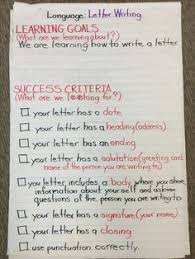 Language: Letter Writing
LEARNING GOALS
(What are we learning about?)
We are learning how to write a letter.
SUCCESS CRITERIA
(What are we looking for?)
your letter has a date
your letter has a heading (address)
your letter has an ending
your letter has a salutation (greeting and
name of the person you are writing to)
your letter includes a body where you share
information about yourself and ask
questions of the person you are
writing to.
your letter has a signature (your name)
your letter has a closing
use punctuation correctly.